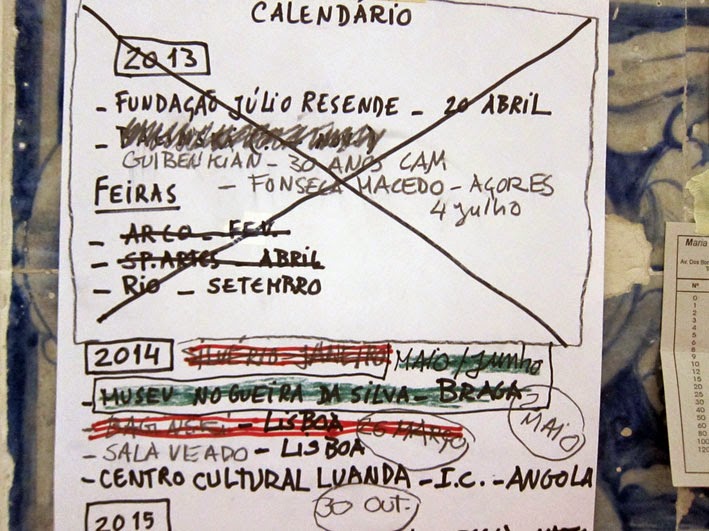 CALENDÁRIO
2013
- FUNDAÇÃO JÚLIO RESENDE - 20 ABRIL
-
GUIBENKIAN - 30 ANOS CAM
FEIRAS
- FONSECA MACEDO - AÇORES
4 julho
- ARCO - FEV.
- SP.ARTES - ABRIL
- RIO - SETEMBRO
2014 MAIO/junho
- MUSEU NOGUEIRA DA SILVA - BRAGA
MAIO
- LISBOA 26 MARÇO
- SALA VEADO - LISBOA
- CENTRO CULTURAL LUANDA - I.C. - ANGOLA
30 OUT.
2015
Maria
Av. Dos
Nº
0
1
2
3
4
5
6
8
9
10
20
25
30
40
50
60
80
100
120